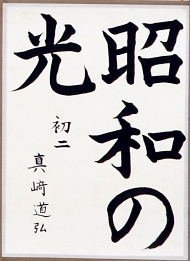 昭和の
光
初二
真崎道弘